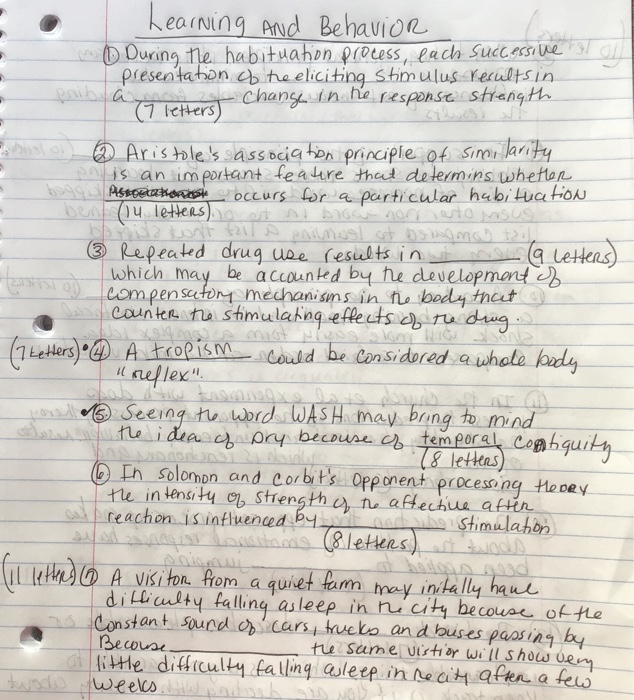 Learning And Behavior
① During the habituation process, each successive
presentation of the eliciting stimulus results in
a ________ change in the response strength
(7 letters)
② Aristole's association principle of similarity
is an important feature that determins whether
________ occurs for a particular habituation
(14 letters).
③ Repeated drug use results in ________ (9 letters)
which may be accounted by the development of
compensatory mechanisms in the body that
counter the stimulating effects of the drug.
(7 letters) ④ A tropism could be considered a whole body
"reflex".
⑤ Seeing the word WASH may bring to mind
the idea of Dry becouse of temporal contiguity
(8 letters)
⑥ In Solomon and Corbit's opponent processing theory
the intensity of strength of the affective after
reaction is influenced by ________ stimulation
(8 letters)
(11 letters) ⑦ A visitor from a quiet farm may initally have
difficulty falling asleep in the city becouse of the
constant sound of cars, trucks and buses passing by
Becouse ________ the same vistior will show very
little difficulty falling asleep in the city after a few
weeks